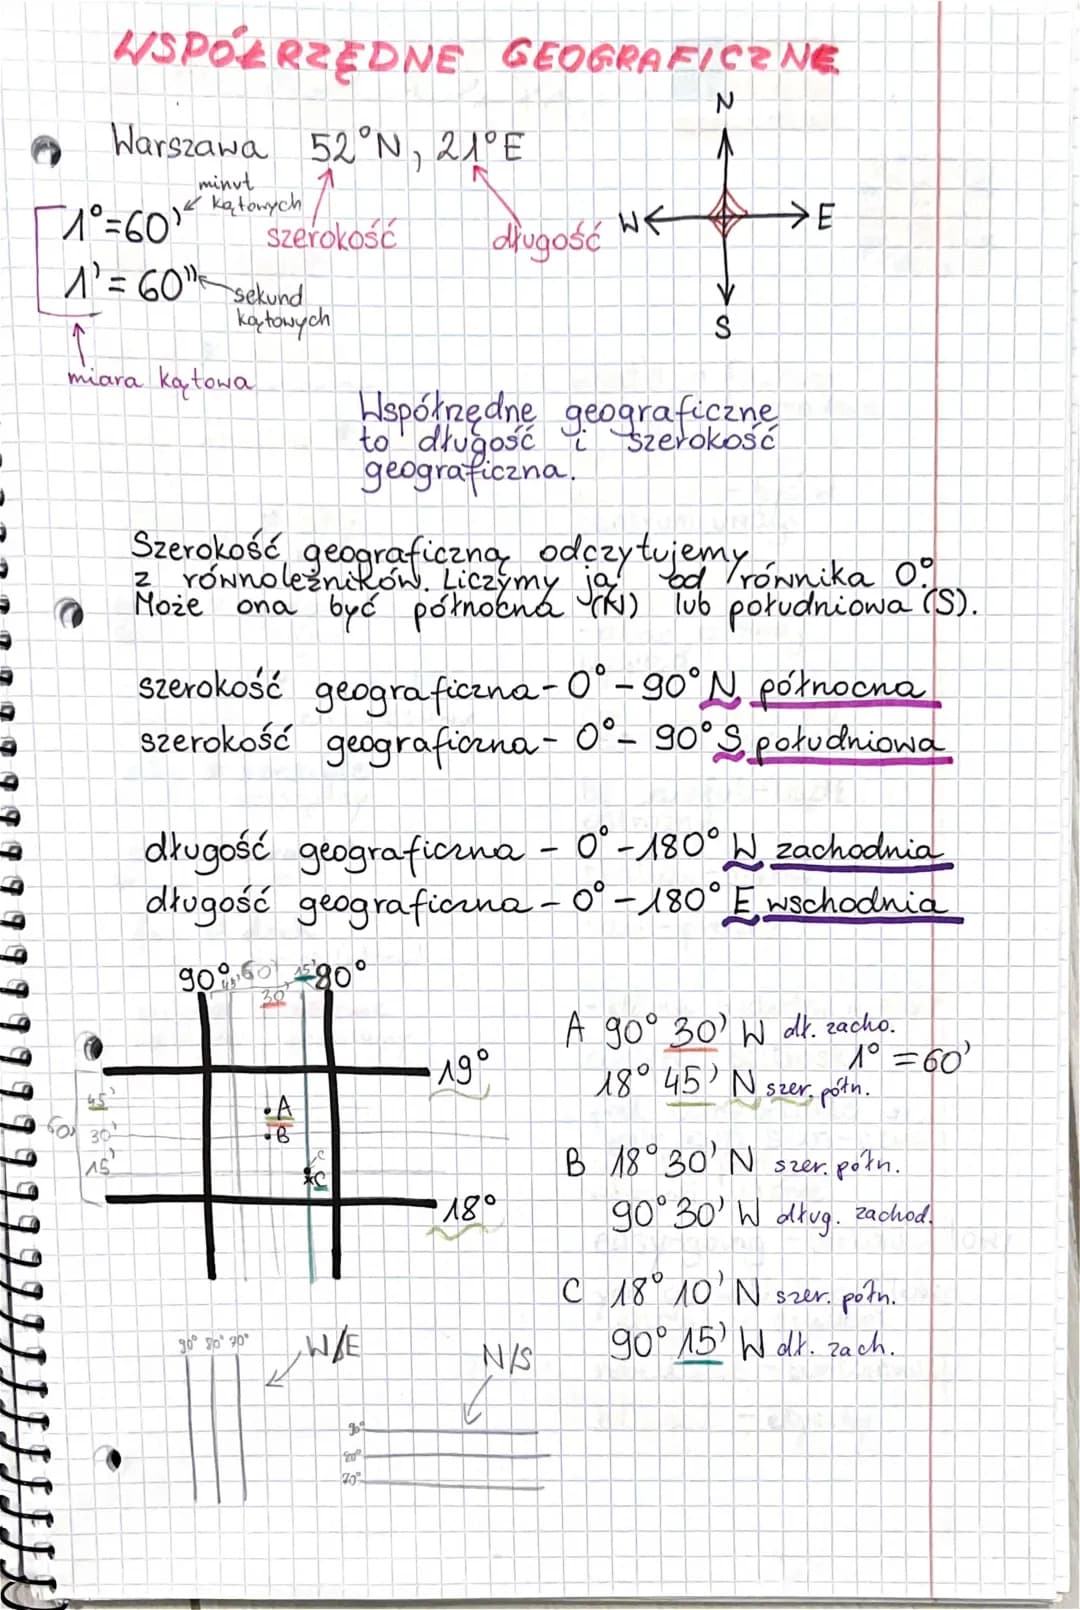 WSPÓŁRZĘDNE GEOGRAFICZNE
N
Warszawa 52°N, 21°E
minut
kątowych
1°=60'
szerokość
długość
W
E
1'=60"
sekund
kątowych
S
miara kątowa
Współrzędne geograficzne
to długość i szerokość
geograficzna.
Szerokość geograficzną odczytujemy
z równoleżników. Liczymy ją od równika 0°.
Może ona być północna (N) lub południowa (S).
szerokość geograficzna - 0° - 90° N północna
szerokość geograficzna - 0° - 90° S południowa
długość geograficzna - 0° - 180° W zachodnia
długość geograficzna - 0° - 180° E wschodnia
90° 45' 60' 15' 90°
30'
A 90° 30' W dł. zacho.
1° = 60'
19°
18° 45' N szer. półn.
45'
A
60' 30'
B
15'
C
C
B 18° 30' N szer. półn.
18°
90° 30' W dług. zachod.
C 18° 10' N szer. półn.
90° 15' W dł. zach.
90° 80° 70°
W/E
N/S
90°
80°
70°